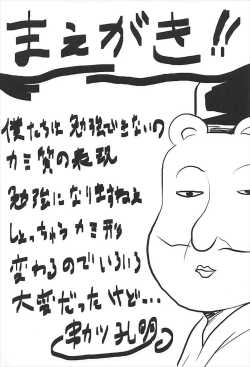 まえがき!!
僕たちは勉強できないの
カミ質の表現
勉強になりますねぇ
しょっちゅうカミ形
変わるのでいろいろ
大変だったけど…
串カツ孔明。